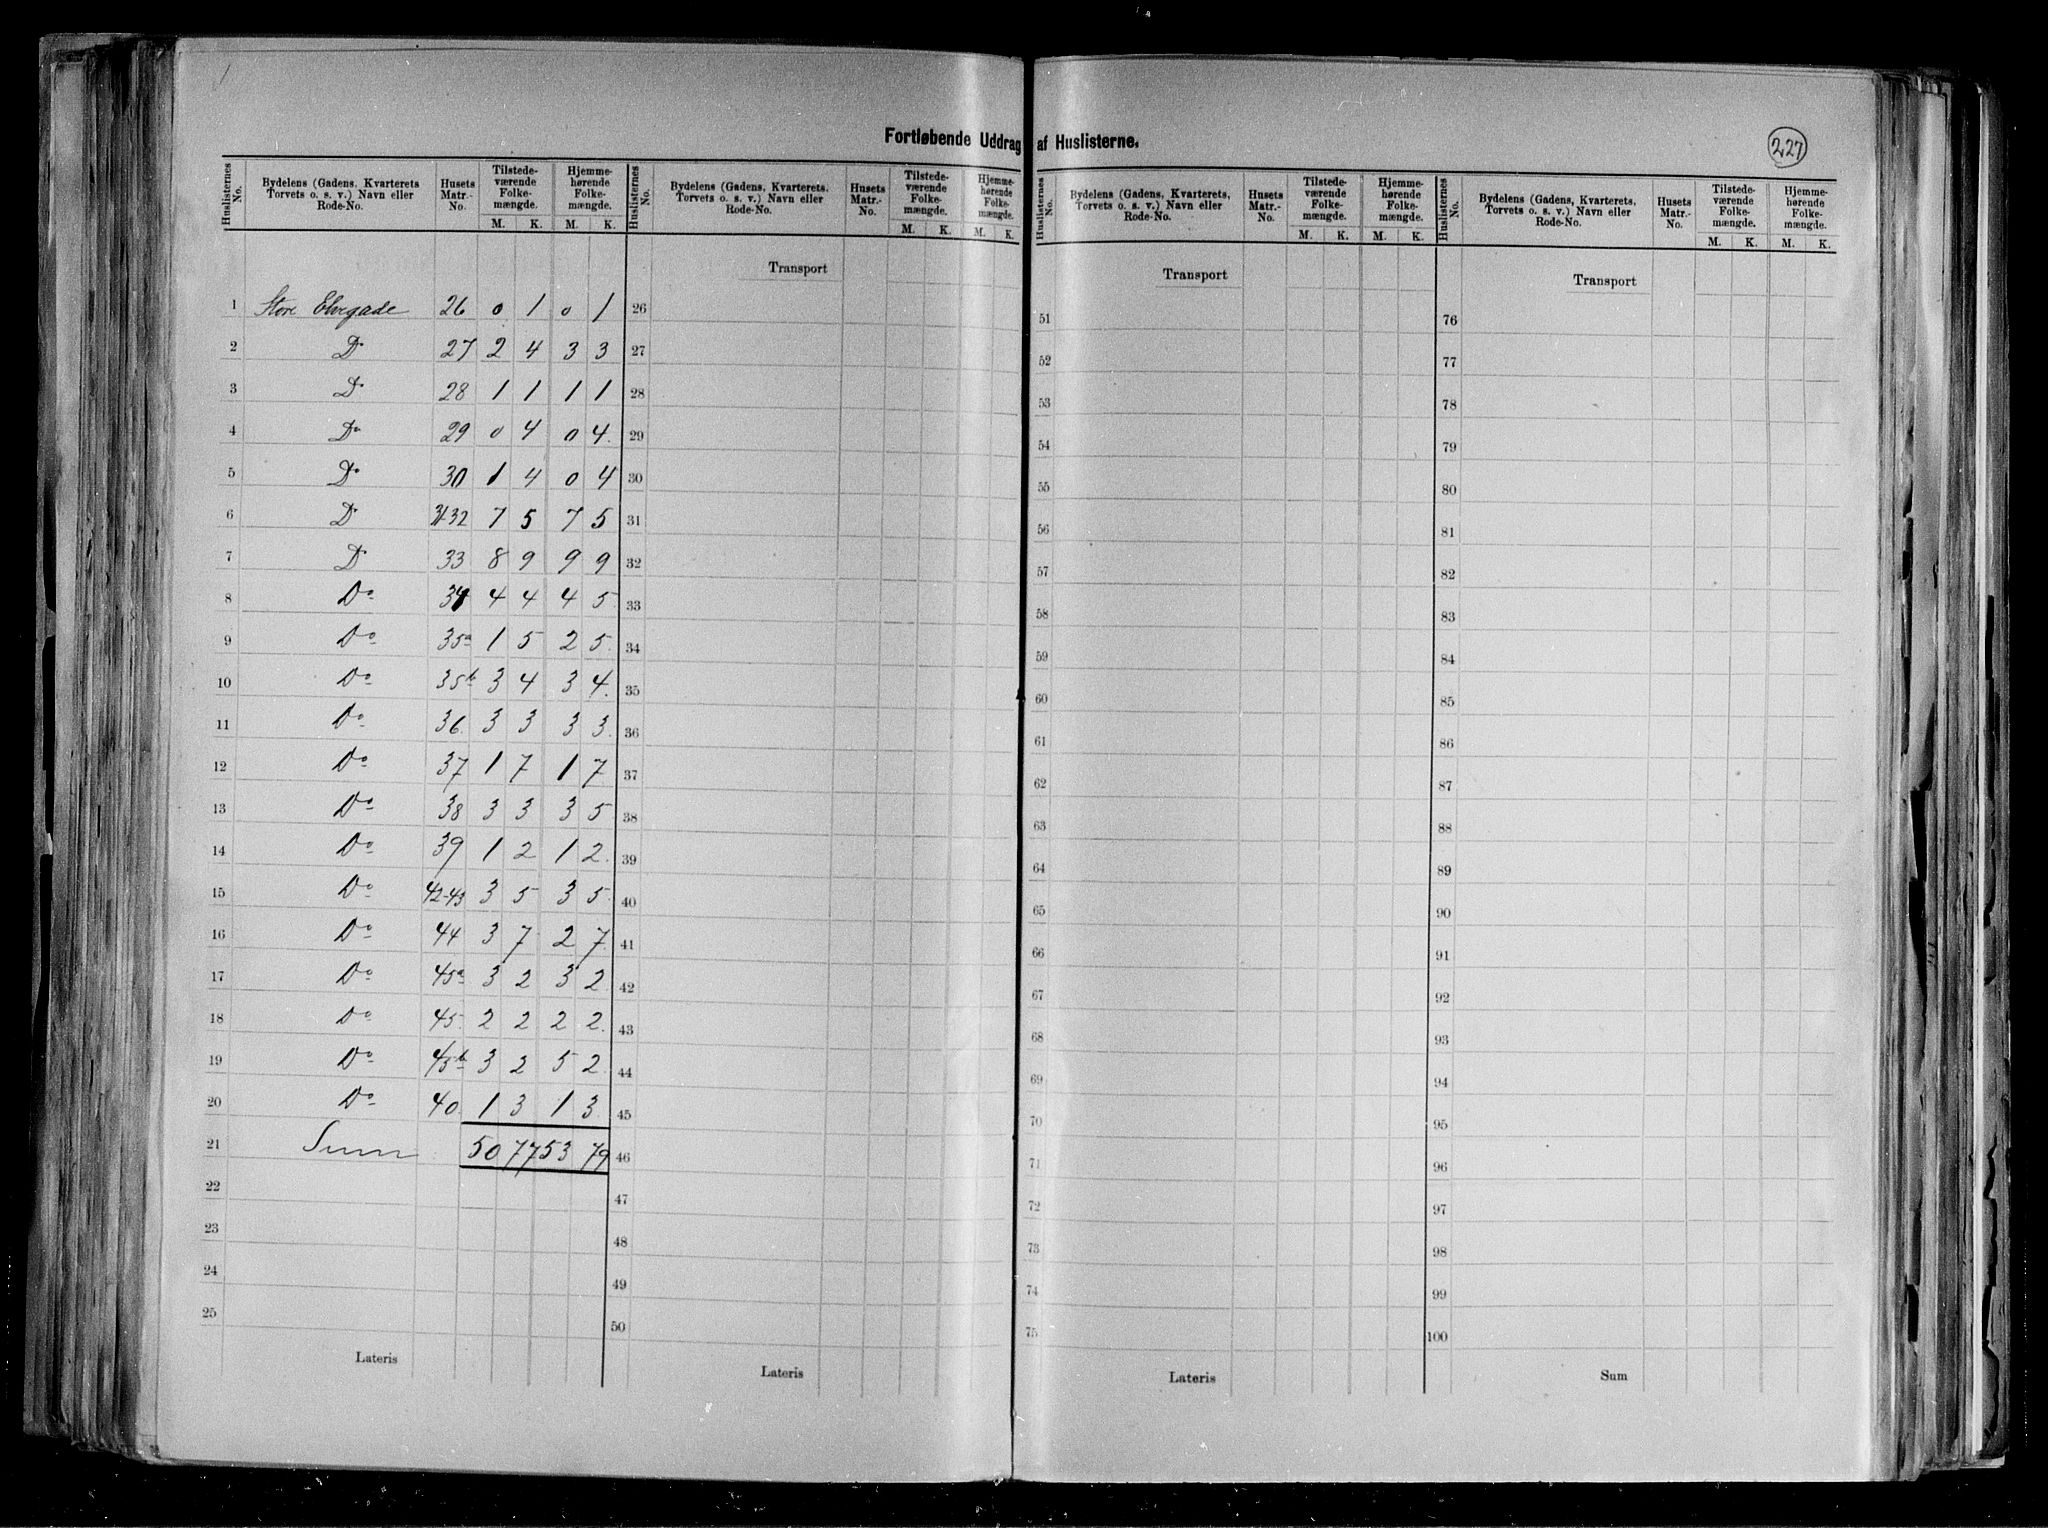 Fortløbende Uddrag af Huslisterne.
227
Huslisternes No. | Bydelens (Gadens, Kvarterets Torvets o. s. v.) Navn eller Rode-No. | Husets Matr.-No. | Tilstede-værende Folke-mængde. M. K. | Hjemme-hørende Folke-mængde. M. K.
1 Store Elvegade 26 0 1 0 1
2 Do 27 2 4 3 3
3 Do 28 1 1 1 1
4 Do 29 0 4 0 4
5 Do 30 1 4 0 4
6 Do 31-32 7 5 7 5
7 Do 33 8 9 9 9
8 Do 34 4 4 4 5
9 Do 35a 1 5 2 5
10 Do 35b 3 4 3 4
11 Do 36 3 3 3 3
12 Do 37 1 7 1 7
13 Do 38 3 3 3 5
14 Do 39 1 2 1 2
15 Do 42-43 3 5 3 5
16 Do 44 3 7 2 7
17 Do 45a 3 2 3 2
18 Do 45 2 2 2 2
19 Do 45b 3 2 5 2
20 Do 40 1 3 1 3
21 Sum 50 77 53 79
22
23
24
25
Lateris
Huslisternes No. | Bydelens (Gadens, Kvarterets, Torvets o. s. v.) Navn eller Rode-No. | Husets Matr.-No. | Tilstede-værende Folke-mængde. M. K. | Hjemme-hørende Folke-mængde. M. K.
Transport
26
27
28
29
30
31
32
33
34
35
36
37
38
39
40
41
42
43
44
45
46
47
48
49
50
Lateris
Huslisternes No. | Bydelens (Gadens, Kvarterets, Torvets o. s. v.) Navn eller Rode-No. | Husets Matr.-No. | Tilstede-værende Folke-mængde. M. K. | Hjemme-hørende Folke-mængde. M. K.
Transport
51
52
53
54
55
56
57
58
59
60
61
62
63
64
65
66
67
68
69
70
71
72
73
74
75
Lateris
Huslisternes No. | Bydelens (Gadens, Kvarterets, Torvets o. s. v.) Navn eller Rode-No. | Husets Matr.-No. | Tilstede-værende Folke-mængde. M. K. | Hjemme-hørende Folke-mængde. M. K.
Transport
76
77
78
79
80
81
82
83
84
85
86
87
88
89
90
91
92
93
94
95
96
97
98
99
100
Sum